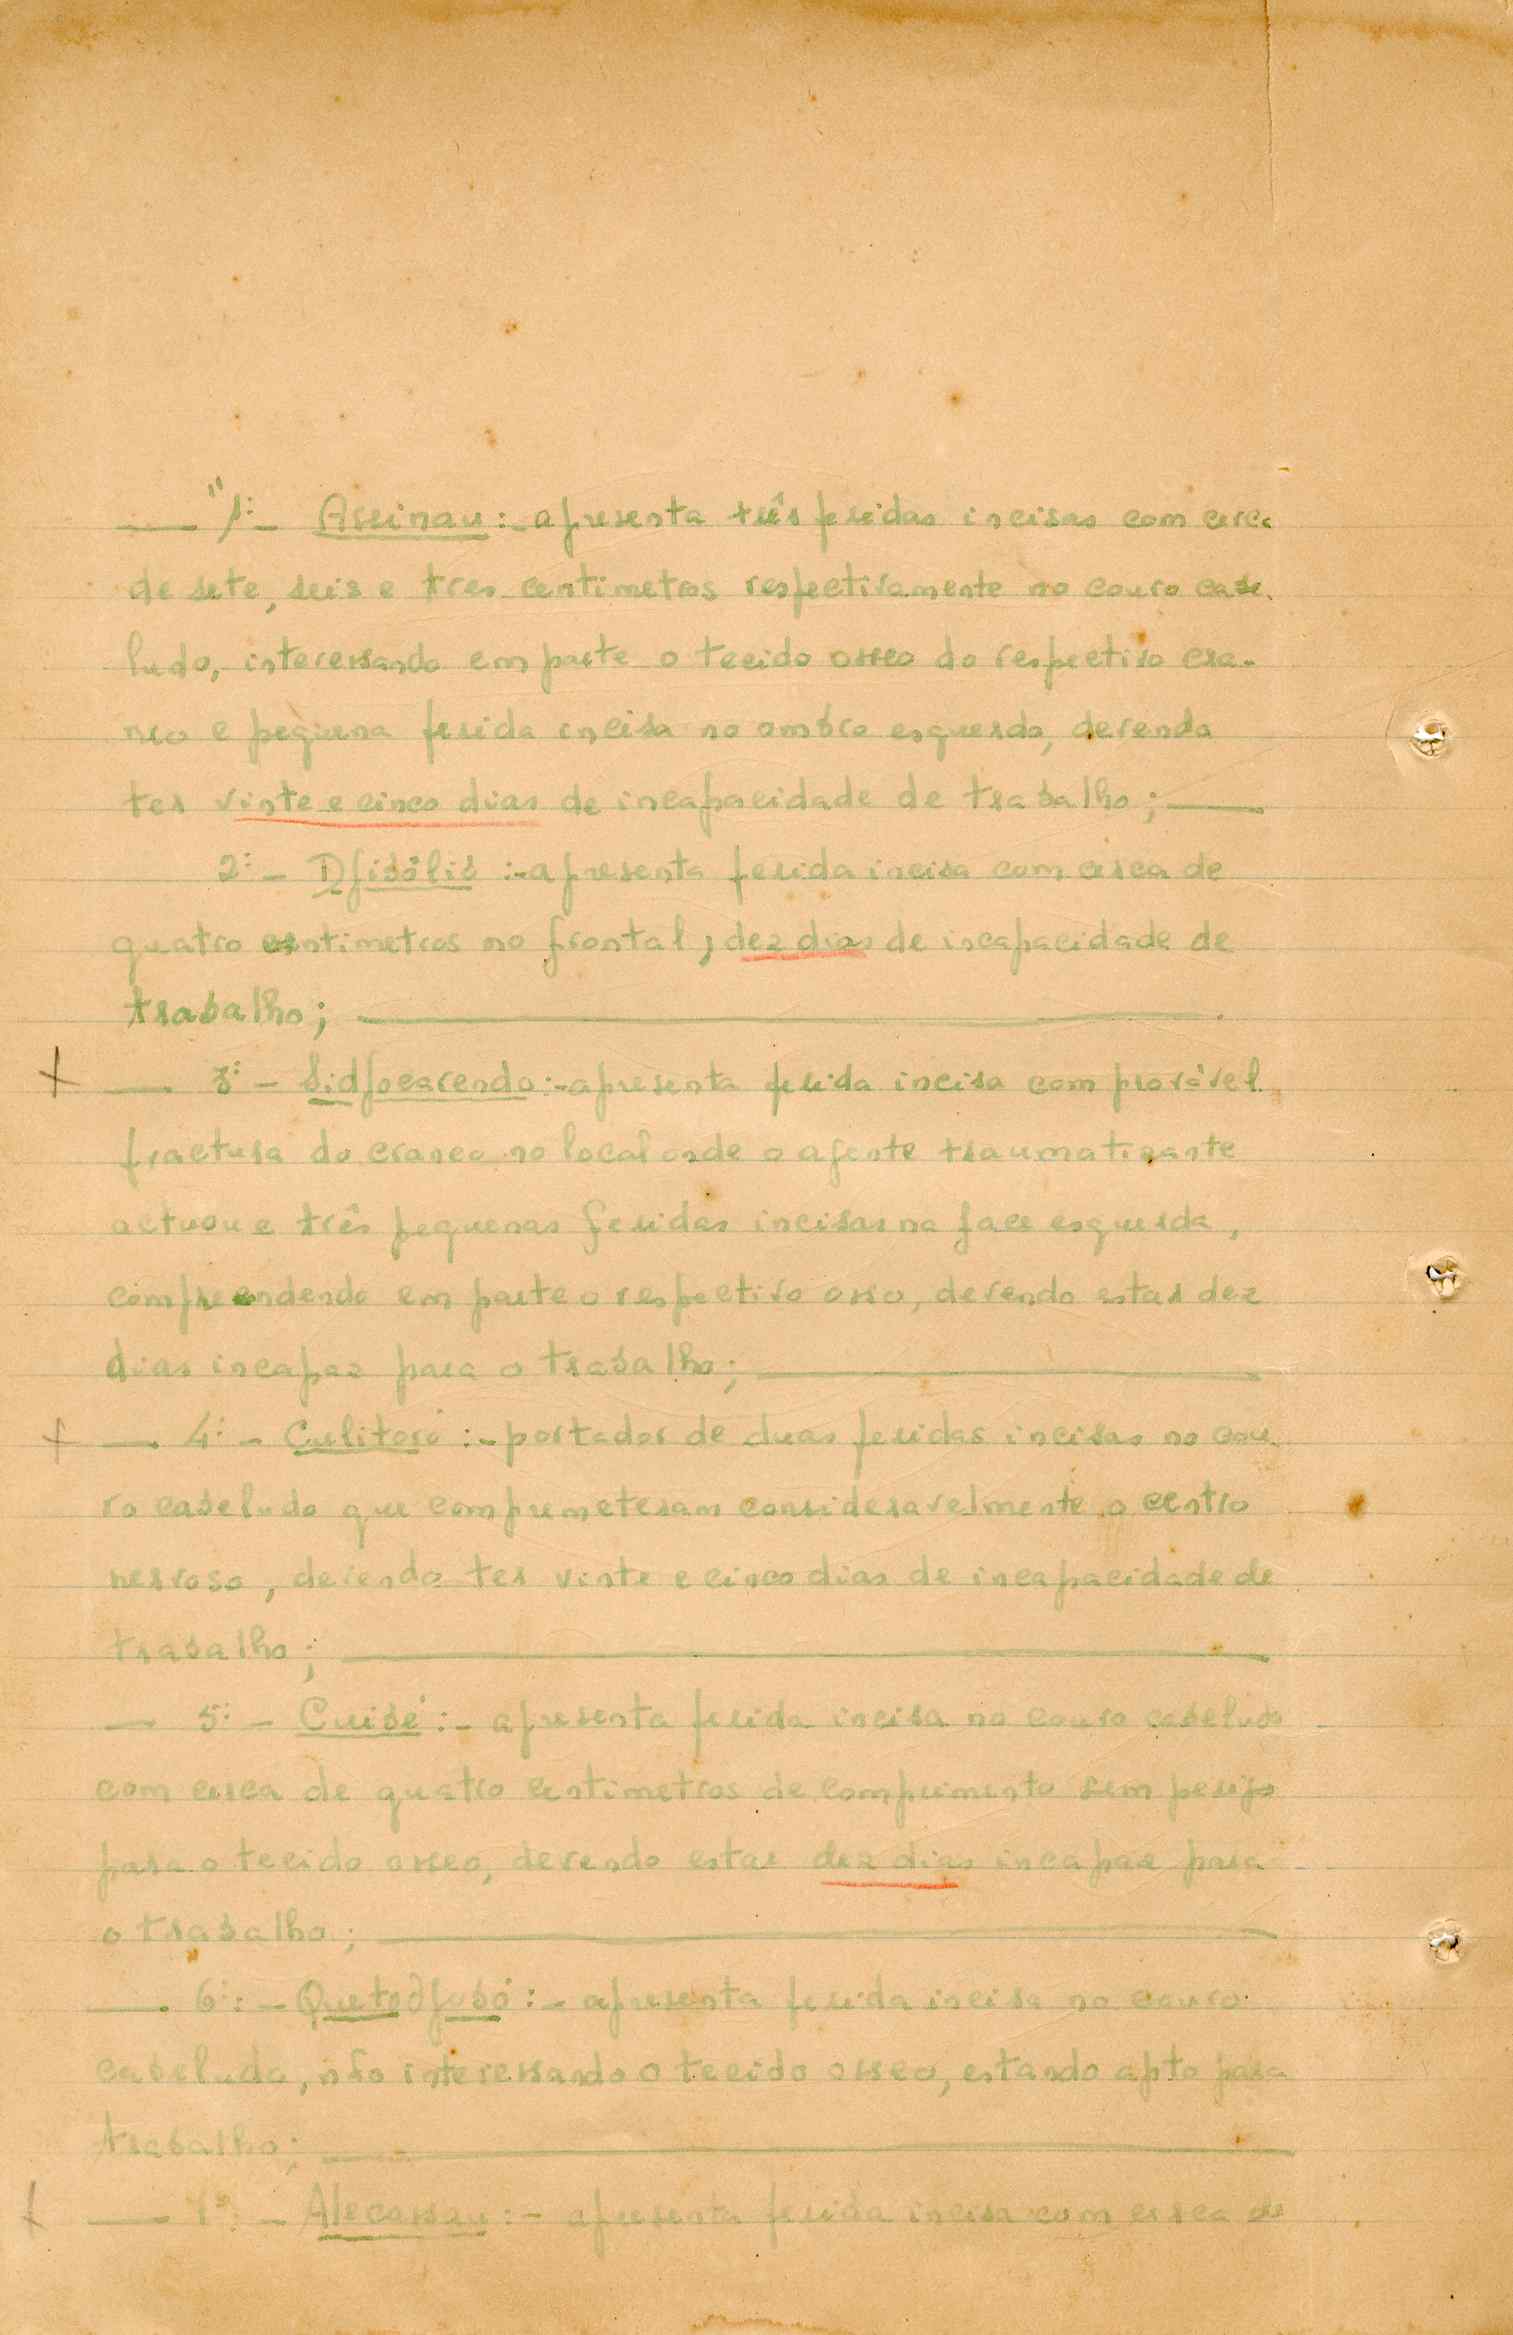 "1º:- Assinau:- apresenta três feridas incisas com cerca
de sete, seis e tres centimetros respectivamente no couro cabe-
ludo, interessando em parte o tecido osseo do respectivo cra-
neo e pequena ferida incisa no ombro esquerdo, devendo
ter vinte e cinco dias de incapacidade de trabalho;
2º:- Djibólis:- apresenta ferida incisa com cerca de
quatro centimetros no frontal, dez dias de incapacidade de
trabalho;
3º- Sidjocarendo:- apresenta ferida incisa com provável
fractura do craneo no local onde o agente traumatizante
actuou e três pequenas feridas incisas na face esquerda,
compreendendo em parte o respectivo osso, devendo estar dez
dias incapaz para o trabalho;
4º- Culitoró:- portador de duas feridas incisas no cou-
ro cabeludo que comprometeram consideravelmente o centro
nervoso, devendo ter vinte e cinco dias de incapacidade de
trabalho;
5º- Cuibé:- apresenta ferida incisa no couro cabeludo
com cerca de quatro centimetros de comprimento sem perigo
para o tecido osseo, devendo estar dez dias incapaz para
o trabalho;
6º:- Quetodjubó:- apresenta ferida incisa no couro
cabeludo, não interessando o tecido osseo, estando apto para
trabalho;
7º:- Alecassau:- apresenta ferida incisa com cerca de